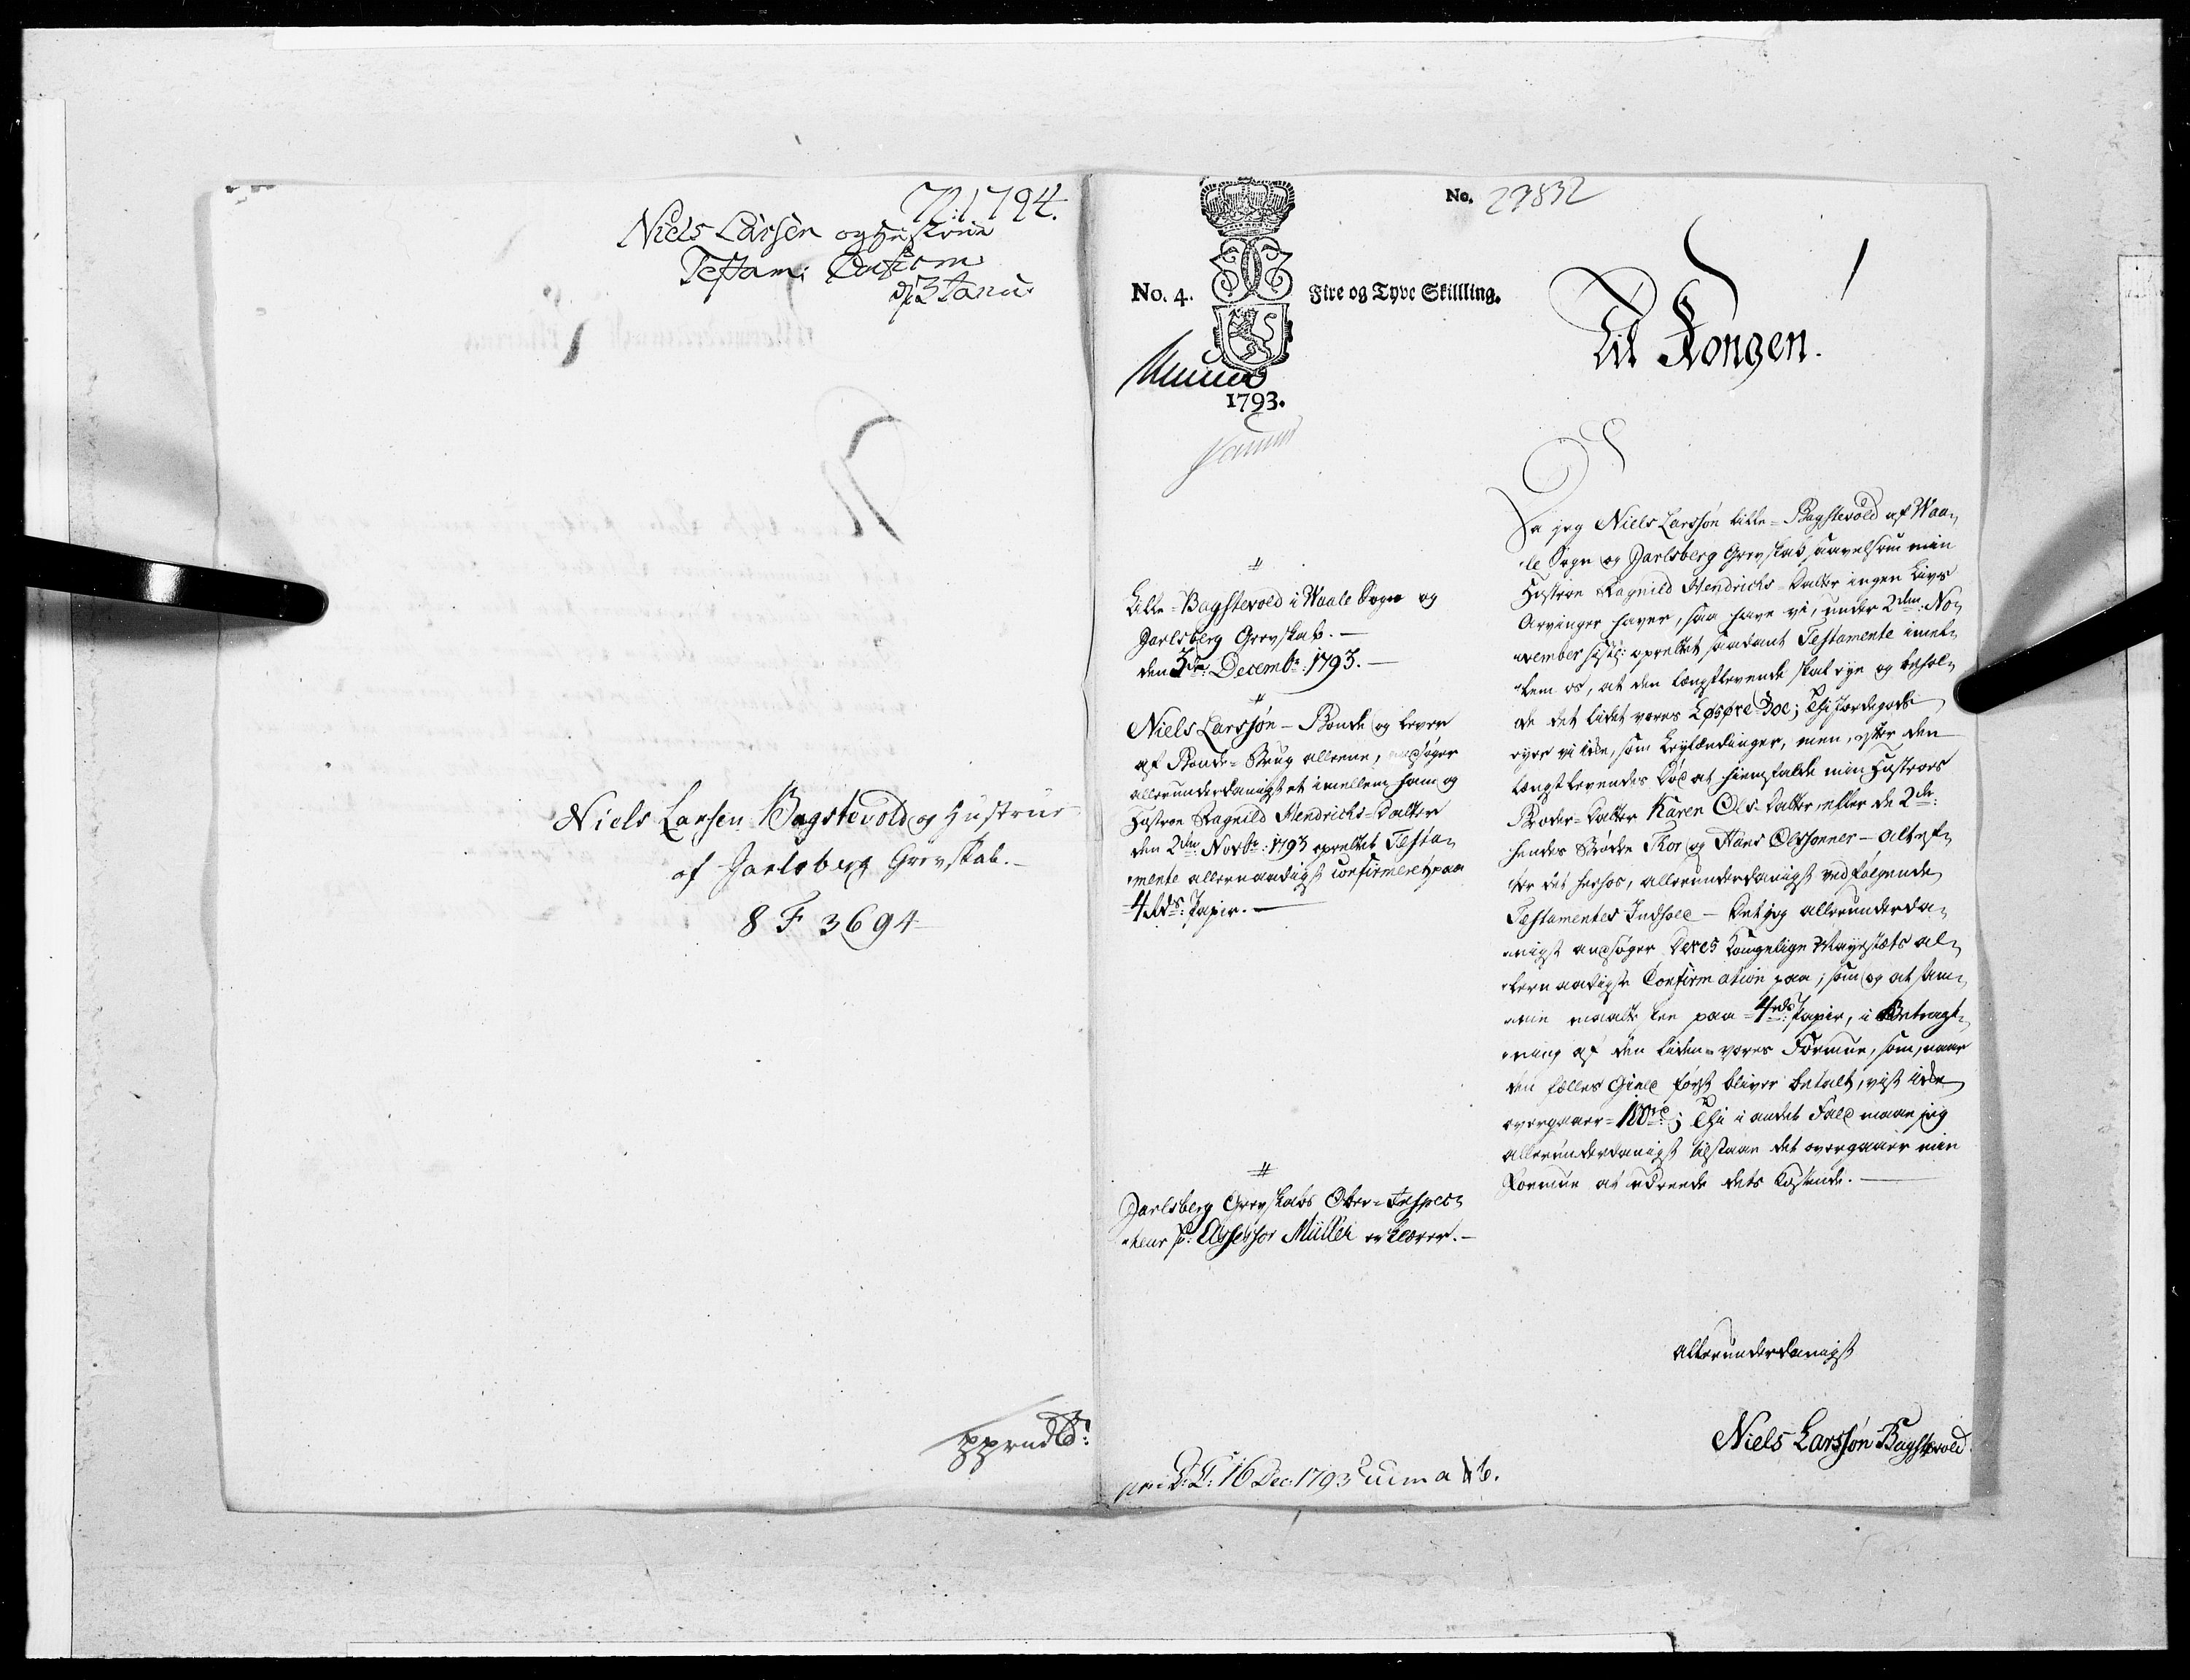 1794.
Niels Larsen og Hustrue
Testam: Confirm:
d 3 Janu:
Niels Larsen Bagstevold og Hustrue
af Jarlsberg Grevskab.
8 F 3694
No. 29832
No. 4. Fire og Tyve Skillling.
1793.
Til Kongen.
Lille-Bagstevold i Waale Sogn og
Jarlsberg Grevskab.
den 3de Decembr: 1793.
Niels Larssøn - Bonde og lever
af Bonde-Brug alleene, ansøger
allerunderdanigst et imellem ham og
Hustroe Ragnild Hendrichs-Datter
den 2den Novbr: 1793 oprettet Testa-
mente allernaadigst confirmeret paa
4 Rds: Papir.
Jarlsberg Grevskabs Ober-Inspec-
teur Hr: Assessor Müller erklærer.
16 Dec: 1793
Da jeg Niels Larssøn Lille-Bagstevold af Waa-
le Sogn og Jarlsberg Grevskab saavelsom min
Hustroe Ragnild Hendrichs-Datter ingen Livs
Arvinger haver, saa have vi, under 2den: No-
vember sistl: oprettet saadant Testamente imel-
lem os, at den længstlevende skal eye og behol-
de det lidet vores Løsøre-Boe; Thi Jordegods
eyer vi ikke, som Leylændinger, men, efter den
længstlevendes Død at hiemfalde min Hustroes
Broder-Datter Karen Ols-Datter eller de 2de:
hendes Brødre Thor og Hans Olssønner - alt ef-
ter det herhos, allerunderdanigst vedfølgende
Testamentes Indhold - Det jeg allerunderda-
nigst ansøger Deres Kongelige Mayestæts al-
lernaadigste Confirmation paa; som og at sam-
me maatte skee paa 4 rds: Papir, i Betragt-
ning af den liden vores Formue, som, naar
den fælles Gield først bliver betalt, vist ikke
overgaaer 100 rd; Thi i andet Fald maae jeg
allerunderdanigst tilstaae det overgaaer min
Formue at udreede dets Kostende.
Allerunderdanigst
Niels Larssøn Bagstevold